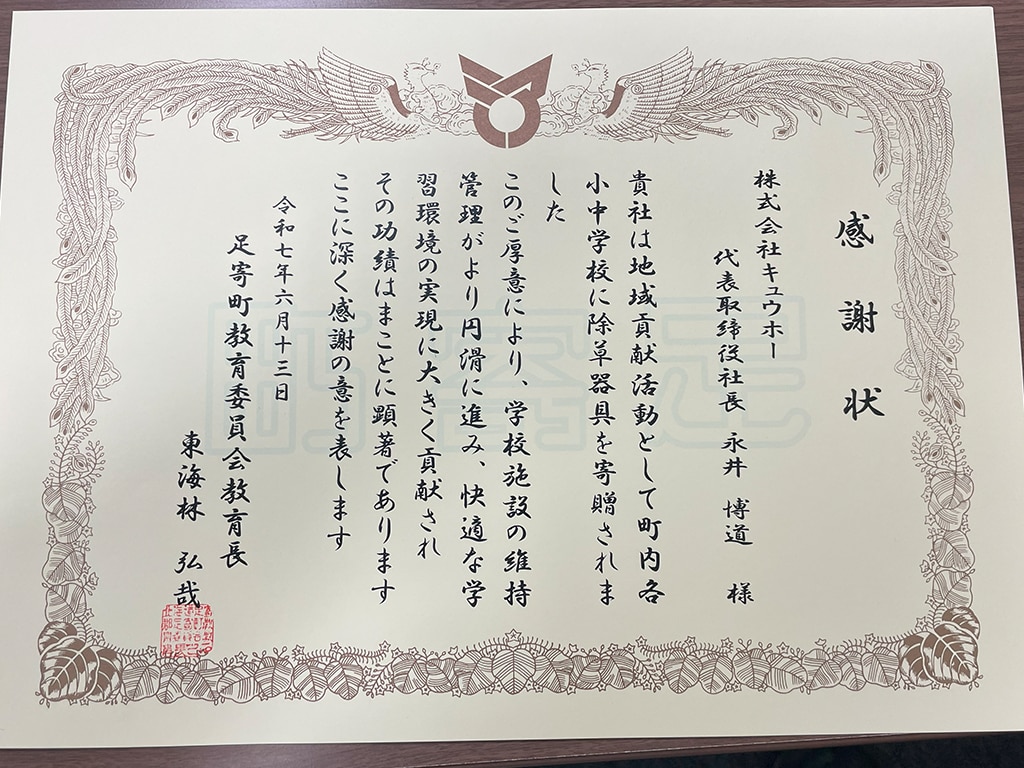 感謝状
株式会社キュウホー
代表取締役社長 永井 博道 様
貴社は地域貢献活動として町内各
小中学校に除草器具を寄贈されま
した
このご厚意により、学校施設の維持
管理がより円滑に進み、快適な学
習環境の実現に大きく貢献され
その功績はまことに顕著であります
ここに深く感謝の意を表します
令和七年六月十三日
足寄町教育委員会教育長
東海林 弘哉
足寄町